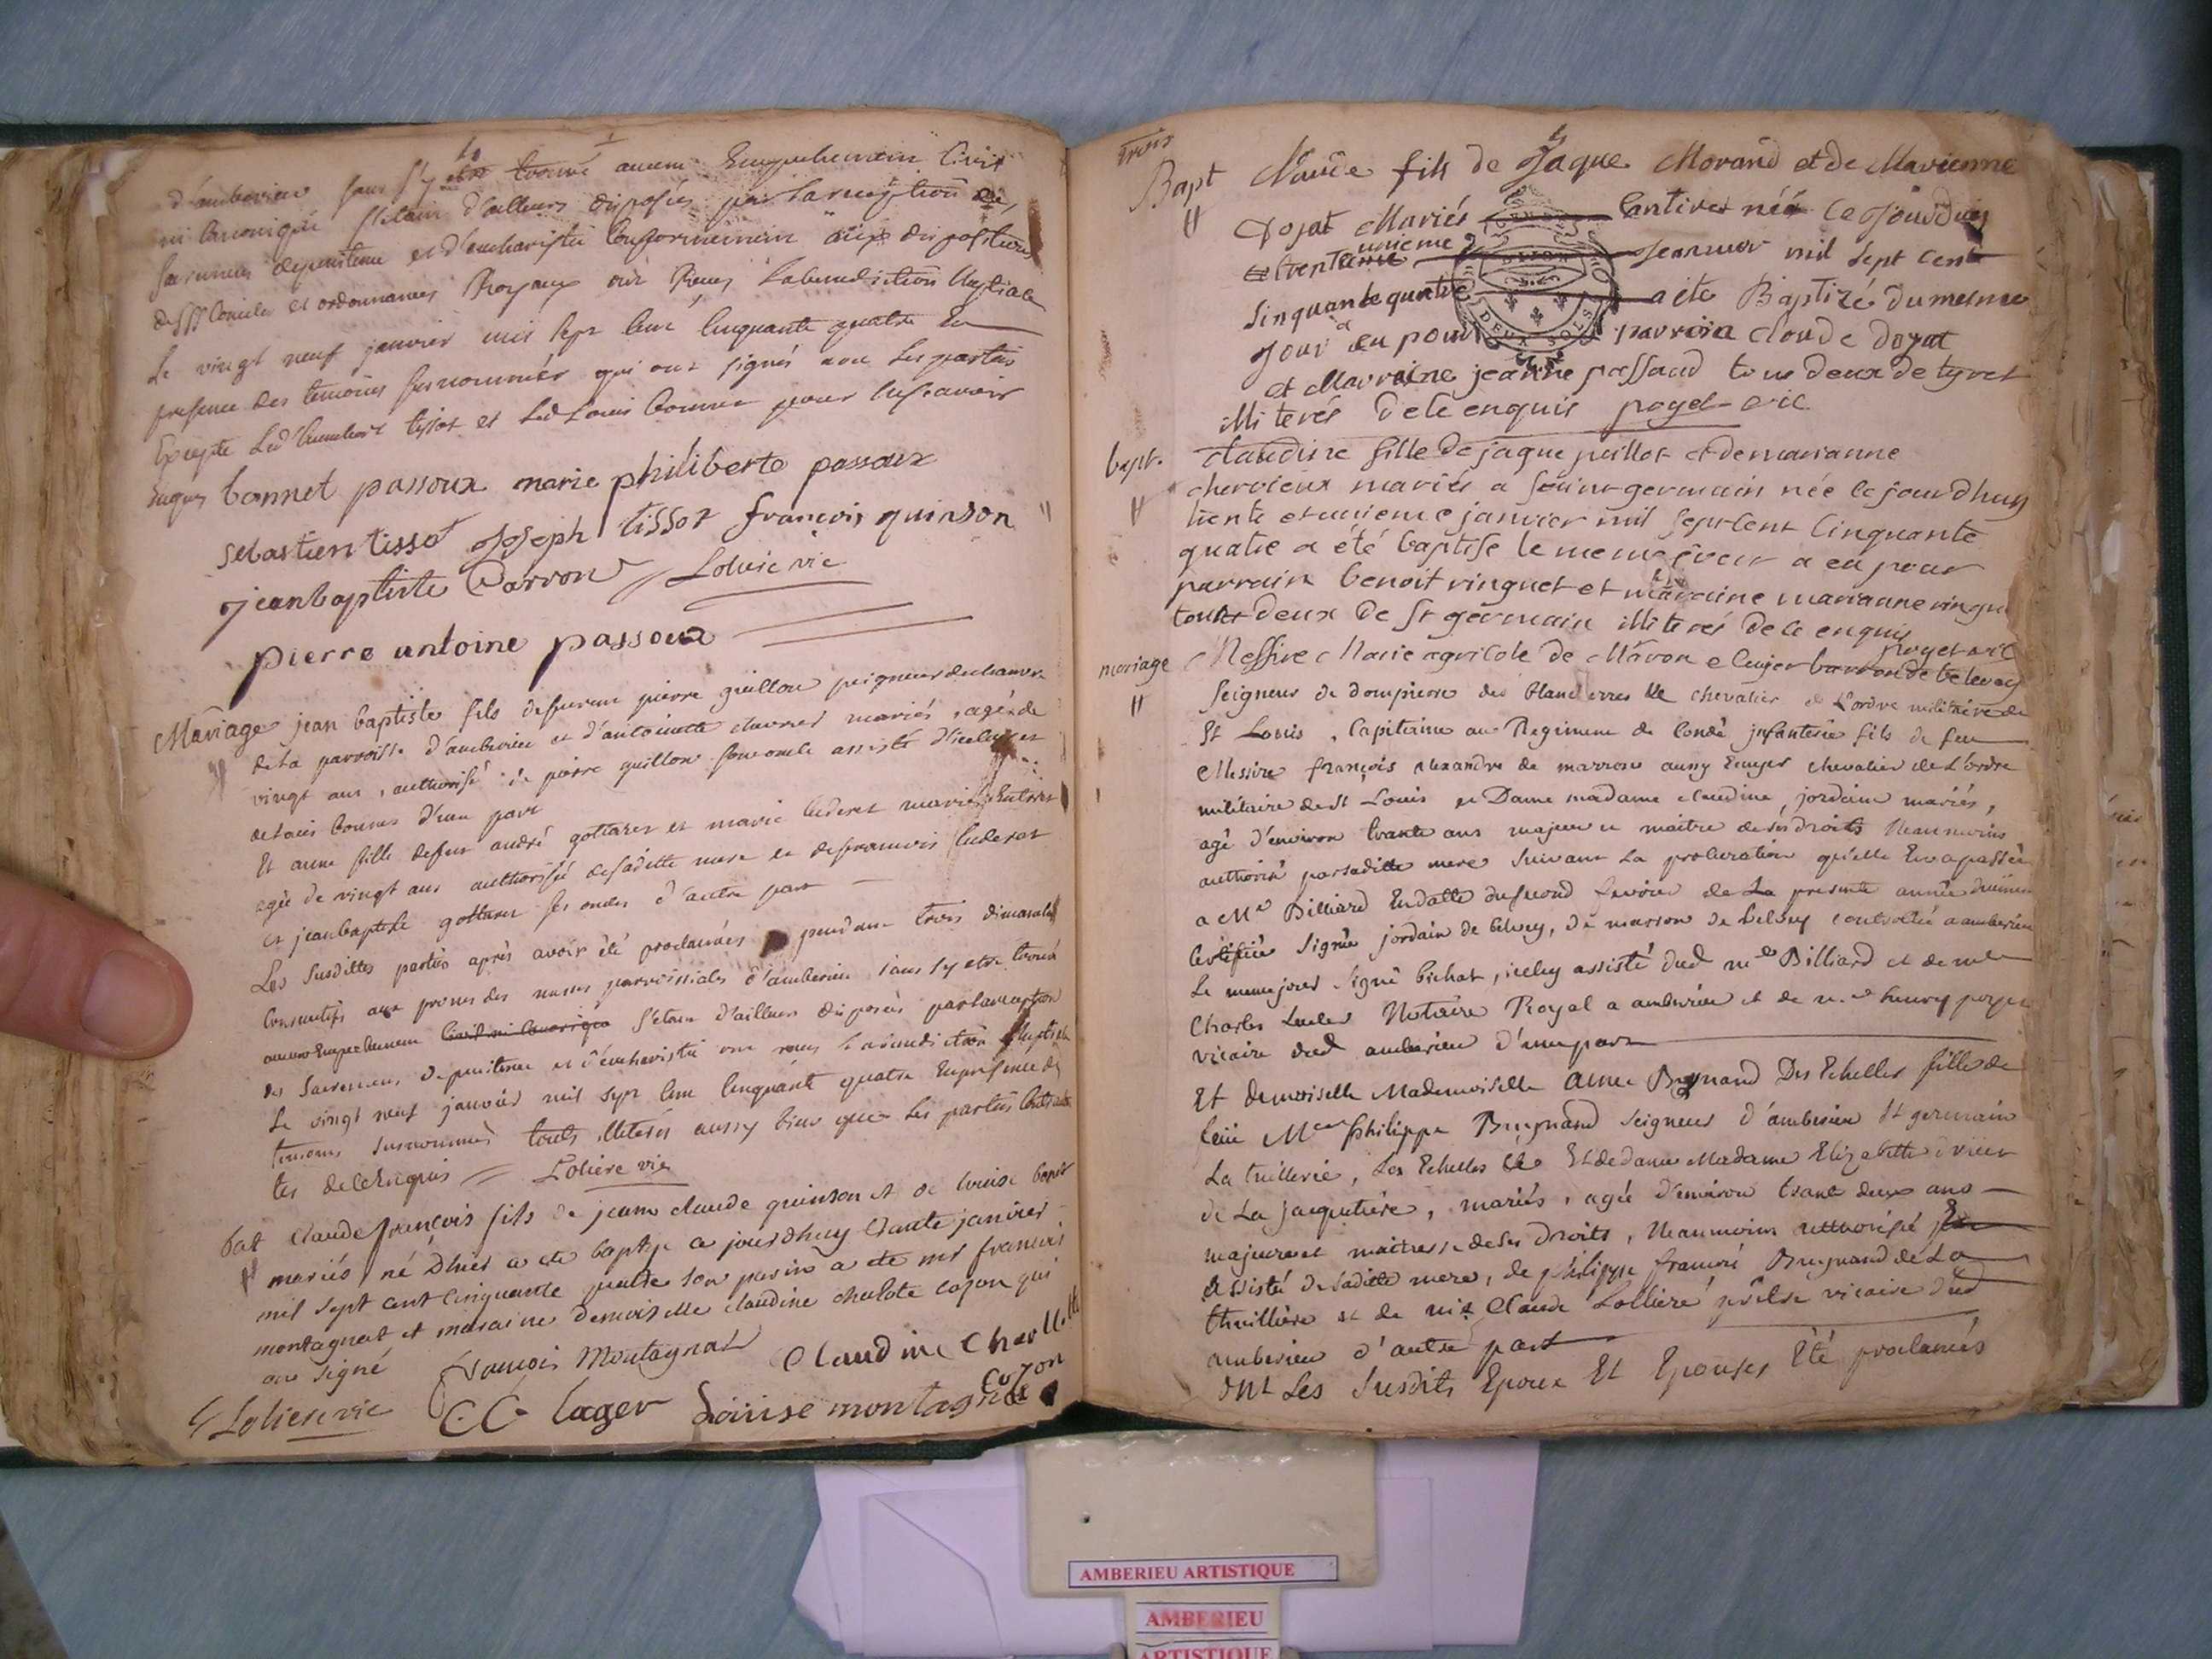 d'amberieu sans s'y etre trouvé aucun Empechement Civil
ni Canonique s'etant d'ailleurs disposés par la reception des
sacremens de penitence et d'eucharistie Conformement aux dispositions
des SSts Conciles et ordonnances Royaux ont Reçus la benediction Nuptiale
Le vingt neuf janvier mil sept Cent Cinquante quatre En
presence des temoins susnommés qui ont signés avec les parties
Excepté Led humbert tissot et Led Louis bonnet pour ne sçavoir
Enquis bonnet passoux marie philiberte passoux
sebastien tissot Joseph tissot françois quinson
jean baptiste Carron Loliere vic
pierre antoine passoux
Mariage jean baptiste fils de furent pierre guillon peigneur de chanvre
de la parroisse d'amberieu et d'antoinette mariés, agé de
vingt ans, authorisé de pierre guillon son oncle assisté d'icelluy et
de Louis bonnet d'une part
Et anne fille de feu andré gottaret et marie mariés
agée de vingt ans authorisée de sa ditte mere et de françois
et jean baptiste gottaret ses oncles d'autre part
Les susdittes parties après avoir été proclamées pendant trois dimanches
Consecutifs aux prones des messes parroissiales d'amberieu sans s'y etre trouvé
aucun Empechement Civil ni Canonique s'etant d'ailleurs disposés par la reception
des Sacremens de penitence et d'eucharistie ont reçus la benediction Nuptiale
Le vingt neuf janvier mil sept Cent Cinquante quatre En presence des
temoins susnommés touts illiterés aussy bien que les parties Contractan
tes de ce Enquis Loliere vic
bat Claude françois fils de jean claude quinson et de louise
mariés né d'hier a ete baptisé a jourdhuy trante janvier
mil sept cent Cinquante quatre son parin a ete mr françois
montagnat et maraine demoiselle claudine charlote cozon qui
ont signé françois Montagnat Claudine Charlotte
Cozon
Loliere vic C.C. lager Louise montagnat
trois
Bapt Claude fils de Jaque Morand et de Marienne
Dojat Mariés né ce jourdhuy
trentieme unieme Jeanvier mil sept cent
Sinquante quatre a ete Baptizé du mesme
jour a eu pour parrain Claude dojat
et Marraine jeanne passaud tous deux de tiret
illiterés de ce enquis poget vic
bapt. claudine fille de jaque peillot et de marianne
chervieux mariés a saint germain née le jour dhuy
trente et unieme janvier mil sept cent Cinquante
quatre a été baptisé le meme jour a eu pour
parrain benoit ringuet et maraine marianne ringuet
tout deux de st germain illiterés de ce enquis
poget vic
mariage Messire Marie agricole de Maron Ecuyer barron de belvey
Seigneur de dompierre des blancherres chevalier de L'ordre militaire de
St Louis, Capitaine au Regiment de Condé jnfanterie fils de feu
Messire françois alexandre de marron aussy Ecuyer chevalier de L'ordre
militaire de St Louis et Dame madame claudine jordain mariés,
agé d'environ trante ans majeur et maitre de ses droits Neanmoins
authorisé par sa ditte mere suivant La procuration qu'elle En a passée
a Me Billiard En datte du second fevrier de La presente année duement
Certifiée Signée jordain de belvey, De marron de belvey Controllée a amberieu
Le meme jour signé bichat, icelluy assisté dud me Billiard et de me
Charles Notaire Royal a amberieu et de me henry poget
vicaire dud amberieu d'une part
Et demoiselle Mademoiselle anne Dujnand Des Echelles fille de
feu Mre philippe Seigneur d'amberieu St germain
La tuillerie, Les Echelles Et de dame Madame Elizabette
de La jacquetiere, mariés, agée d'environ trante deux ans
majeure et maitresse de ses droits, Neanmoins authorisée
assisté de sa ditte mere, de philippe françois de La
thuilliere et de mre Claude Lolliere prêtre vicaire dud
amberieu d'autre part
ont Les Susdits Epoux Et Epouses Eté proclamés
AMBERIEU ARTISTIQUE
AMBERIEU
ARTISTIQUE